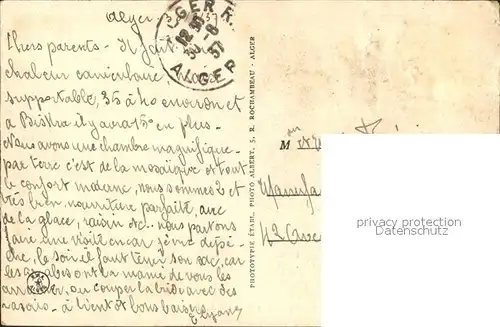 Alger
ALGER R.P.
ALGER
Chers parents - Il fait une
chaleur caniculaire
supportable, 35 à 40 environ et
à Biskra il y aura 15° en plus -
Nous avons une chambre magnifique -
par terre c'est de la mosaïque et tout
le confort moderne, nous sommes
très bien, nourriture parfaite, avec
de la glace, raisin etc.. nous partons
faire une visite en car je me dépê-
che, le soir il faut tenir son sac, car
les arabes ont la manie de vous les
arracher, ou couper la bride avec des
rasoirs - à bientôt bons baisers
PHOTOTYPIE ÉTABL. PHOTO ALBERT, 5, R. ROCHAMBEAU - ALGER
M
42 Ave
privacy protection
Datenschutz